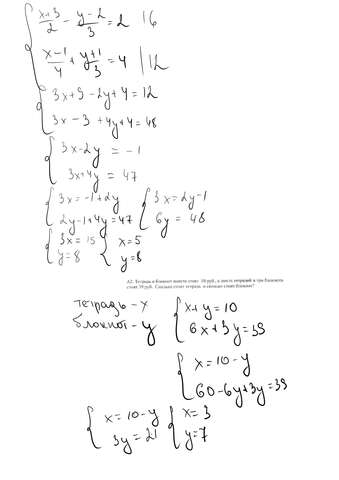 x+3/2 - y-2/3 = 2 | 6
x-1/4 + y+1/3 = 4 | 12
3x+9-2y+4=12
3x-3+4y+4=48
3x-2y = -1
3x+4y = 47
3x=-1+2y 3x=2y-1
2y-1+4y=47 6y = 48
3x=15 x=5
y=8 y=8
А2. Тетрадь и блокнот вместе стоят 10 руб., а шесть тетрадей и три блокнота
стоят 39 руб. Сколько стоит тетрадь и сколько стоит блокнот?
тетрадь - x x+y=10
блокнот - y 6x+3y=39
x=10-y
60-6y+3y=39
x=10-y x=3
3y=21 y=7